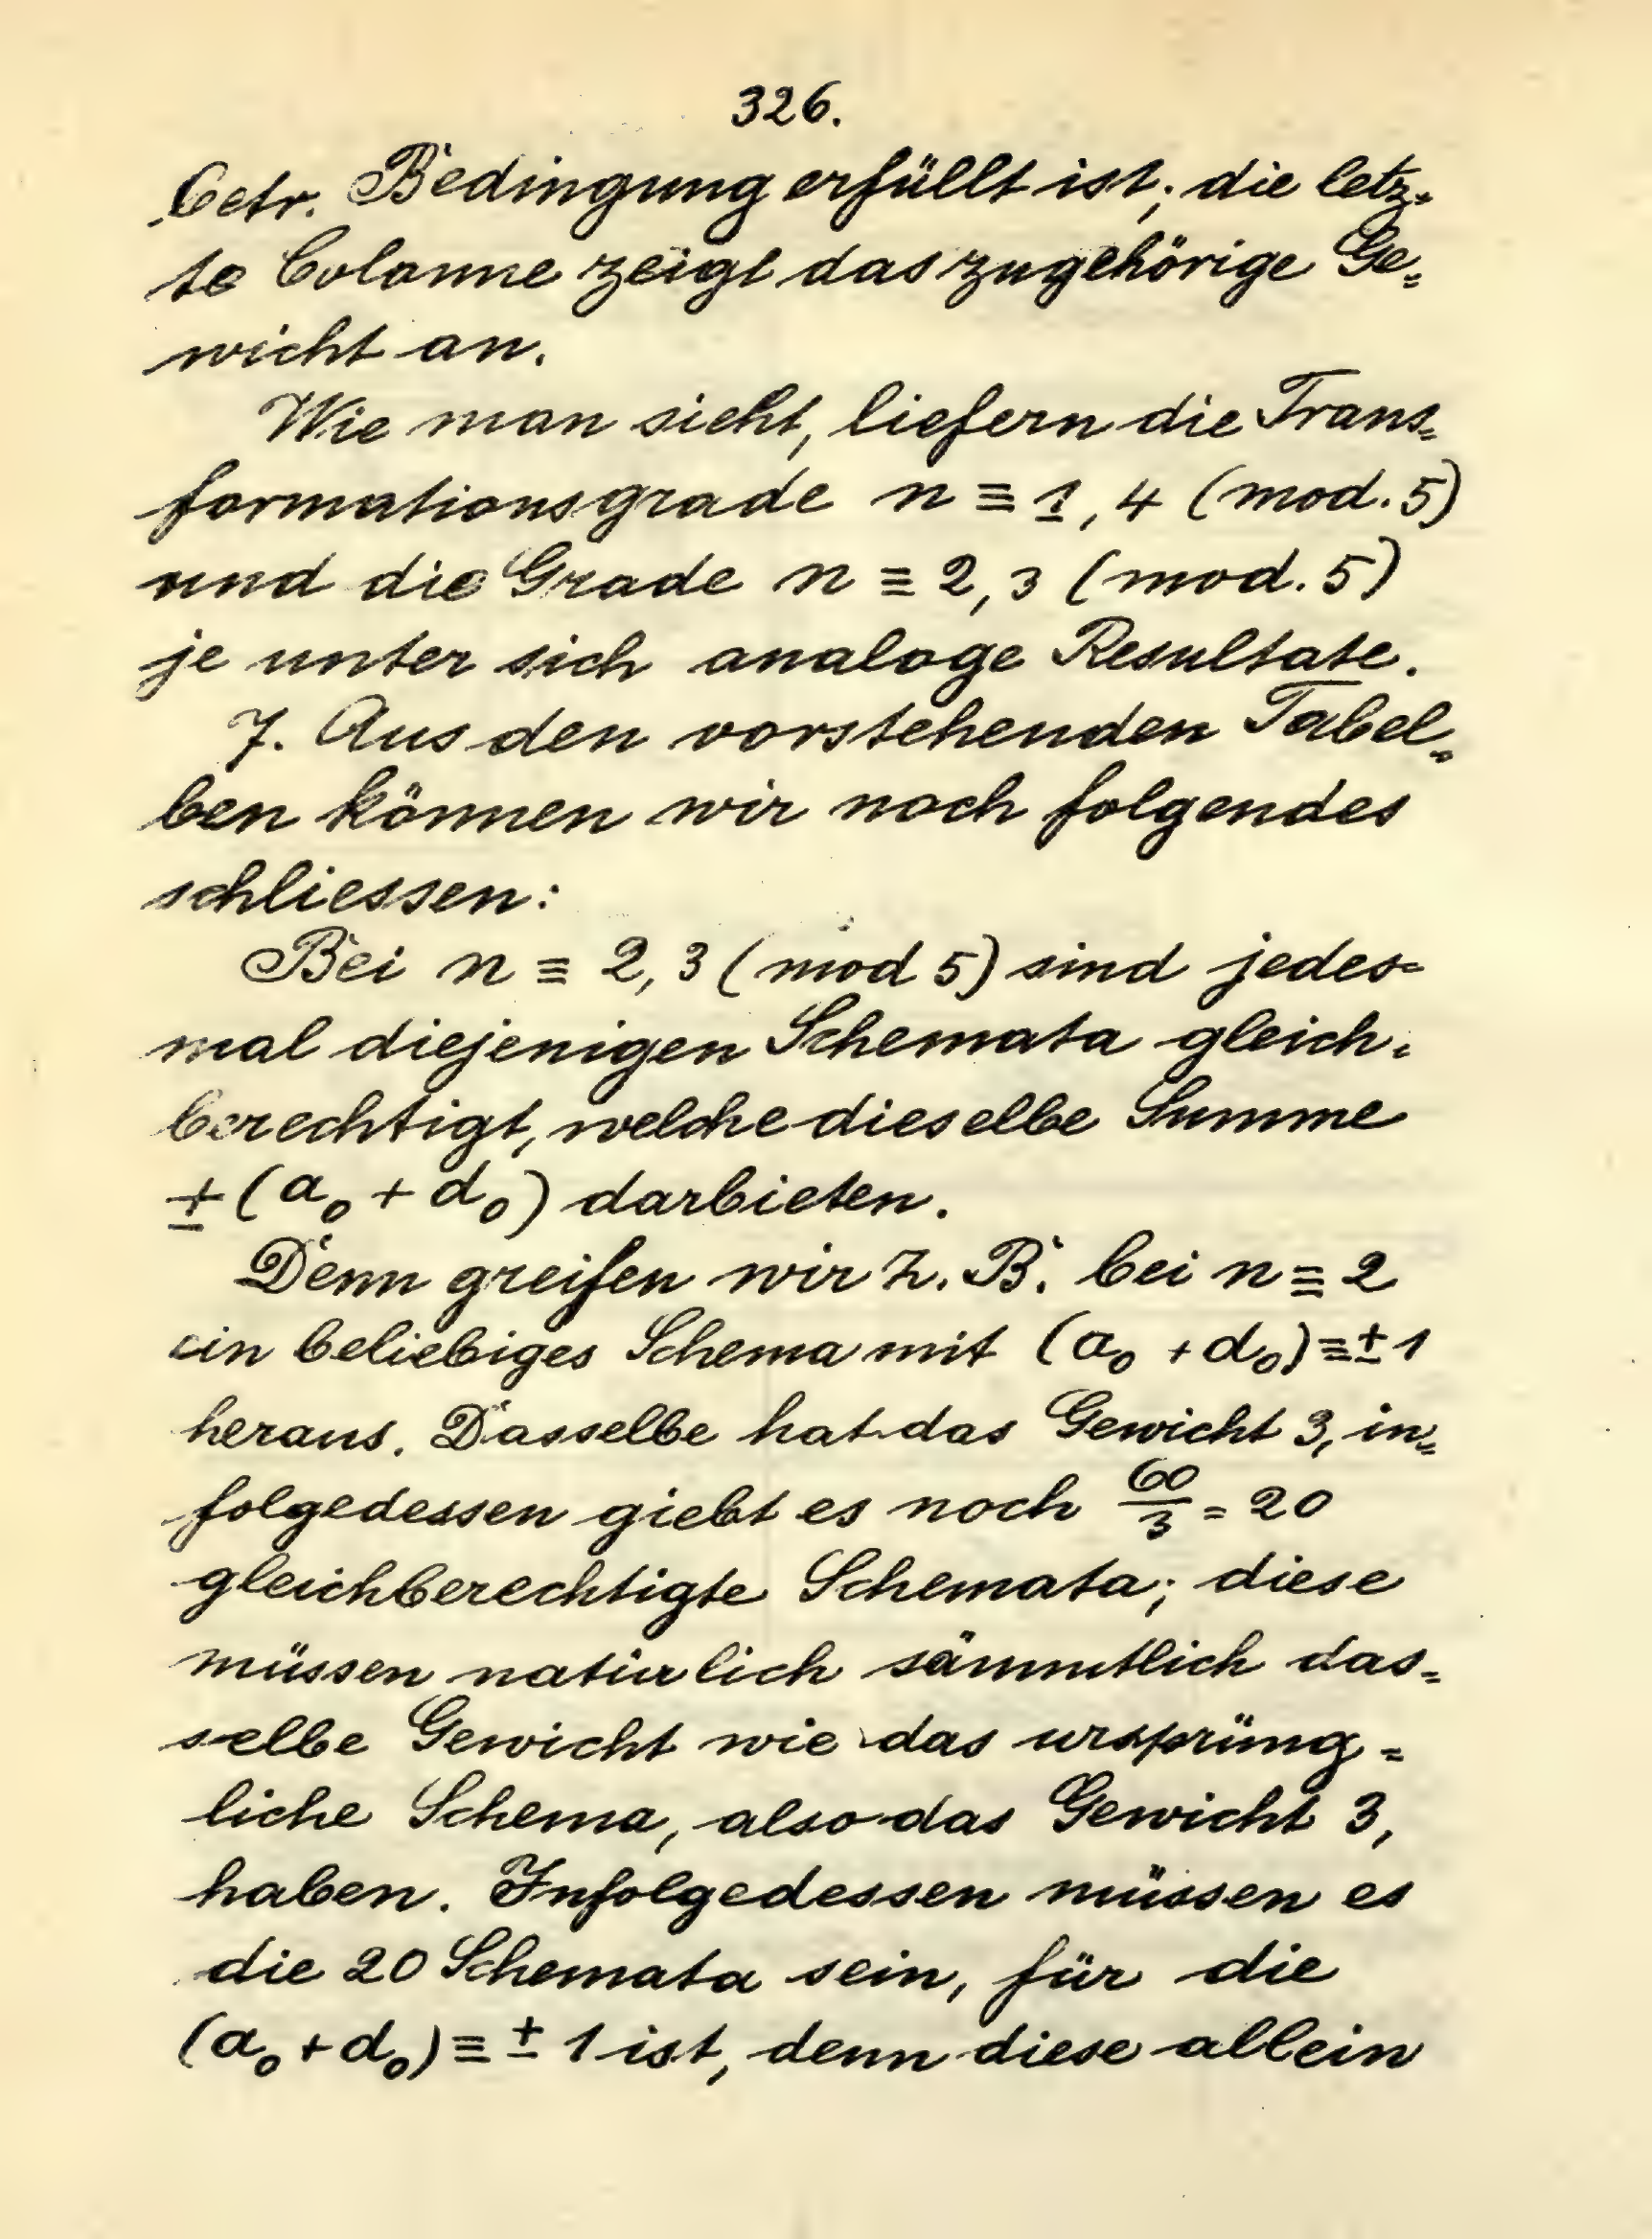 326.
betr. Bedingung erfüllt ist; die letz-
te Colonne zeigt das zugehörige Ge-
wicht an.
Wie man sieht, liefern die Trans-
formationsgrade n ≡ 1, 4 (mod. 5)
und die Grade n ≡ 2, 3 (mod. 5)
je unter sich analoge Resultate.
7. Aus den vorstehenden Tabel-
len können wir noch folgendes
schliessen:
Bei n ≡ 2, 3 (mod 5) sind jedes-
mal diejenigen Schemata gleich-
berechtigt, welche dieselbe Summe
± (a₀ + d₀) darbieten.
Denn greifen wir z. B. bei n ≡ 2
ein beliebiges Schema mit (a₀ + d₀) ≡ ± 1
heraus. Dasselbe hat das Gewicht 3, in-
folgedessen giebt es noch 60/3 = 20
gleichberechtigte Schemata; diese
müssen natürlich sämmtlich das-
selbe Gewicht wie das ursprüng-
liche Schema, also das Gewicht 3,
haben. Infolgedessen müssen es
die 20 Schemata sein, für die
(a₀ + d₀) ≡ ± 1 ist, denn diese allein